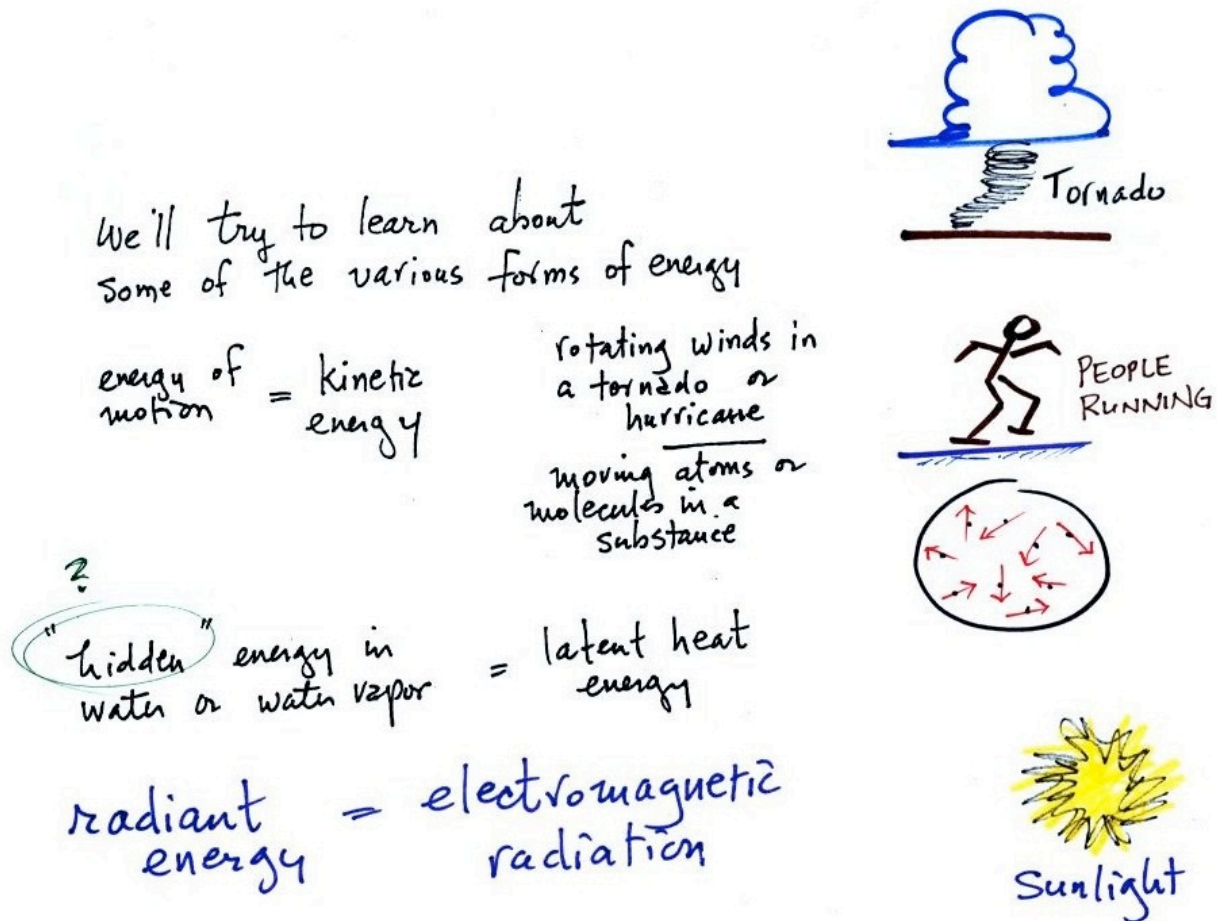 We'll try to learn about
some of the various forms of energy
energy of
motion = kinetic
energy
rotating winds in
a tornado or
hurricane
moving atoms or
molecules in a
substance
Tornado
PEOPLE
RUNNING
?
"hidden" energy in
water or water vapor = latent heat
energy
radiant
energy = electromagnetic
radiation
Sunlight